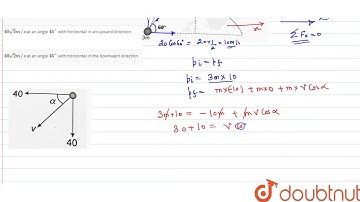 40√2m / s at an angle 45° with horizontal in an upward direction
40√2m / s at an angle 45° with horizontal in the downward direction
60°
3m
x
20 cos60° = 20×1/2 = 10m/s
ΣFx = 0
pi = pf
pi = 3m×10
pf = m×(-10) + m×0 + m×v cosα
3m×10 = -10m + mv cosα
30+10 = v co
40
α
v
40
doubtnut